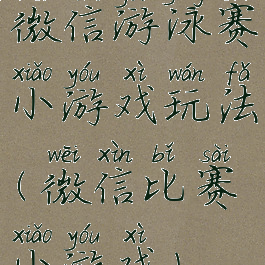 微信游泳赛
xiǎo yóu xì wán fǎ
小游戏玩法
wēi xìn bǐ sài
(微信比赛
xiǎo yóu xì
小游戏)